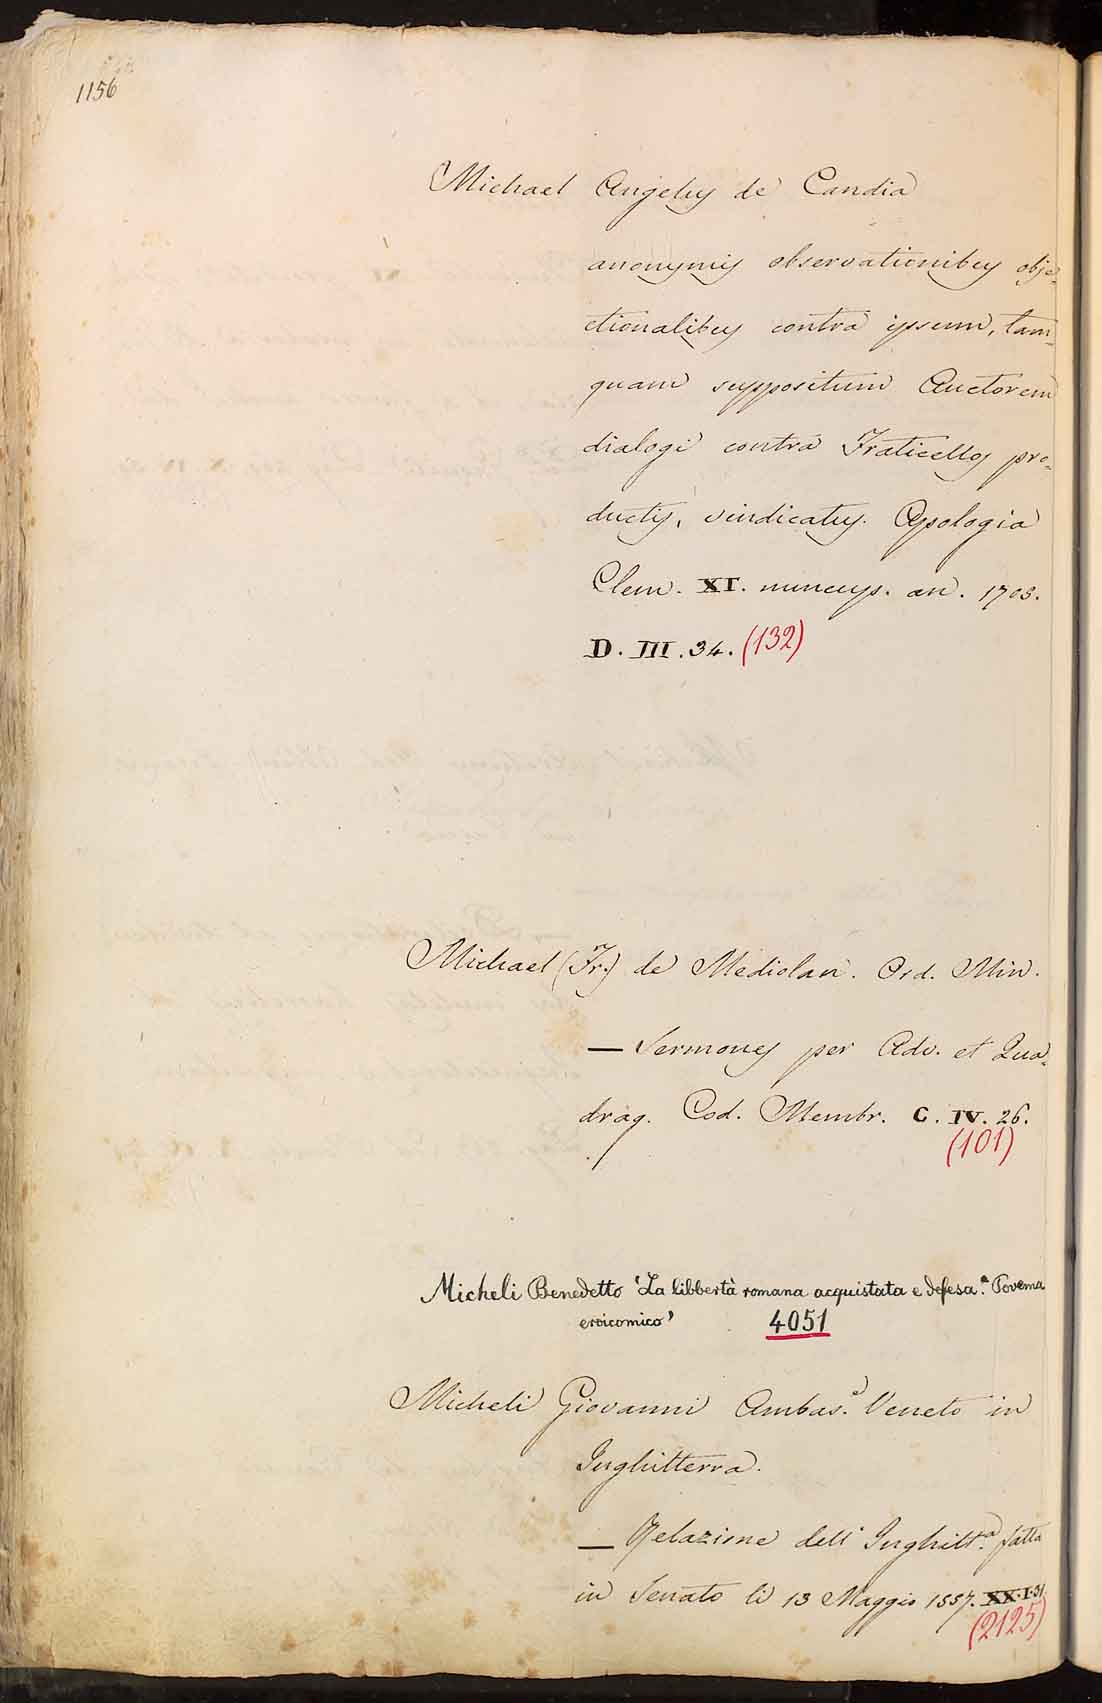 1156
Michael Angelus de Candia
anonymis observationibus obje-
ctionalibus contra ipsum, tam-
quam suppositum Auctorem
dialogi contra Fraticellos pro-
ductis, vindicatus. Apologia
Clem. XI. nuncup. an. 1703.
D. III. 34. (132)
Michael (Fr.) de Mediolan. Ord. Min.
— Sermones per Adv. et Qua-
drag. Cod. Membr. C. IV. 26.
(101)
Micheli Benedetto 'La libbertà romana acquistata e defesa. Povema
eroicomico' 4051
Micheli Giovanni Ambas.e Veneto in
Inghilterra.
— Relazione dell' Inghilt.a fatta
in Senato li 13 Maggio 1557. XX.I.31
(2125)